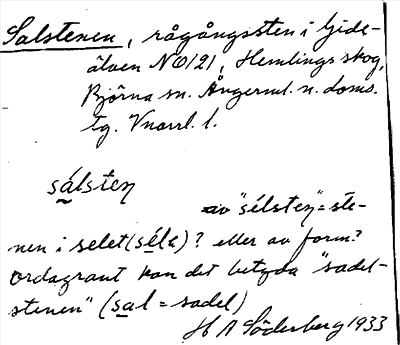 Salstenen, rågångssten i Gide-
älven NO121, Hemlings skog,
Björna sn. Ångerml. n. doms.
tg. Vnorrl. l.
sálsten
av "sélsten" = ste-
nen i selet (séle)? eller av form?
Ordagrant kan det betyda "sadel-
stenen" (sal = sadel)
H A Söderberg 1933